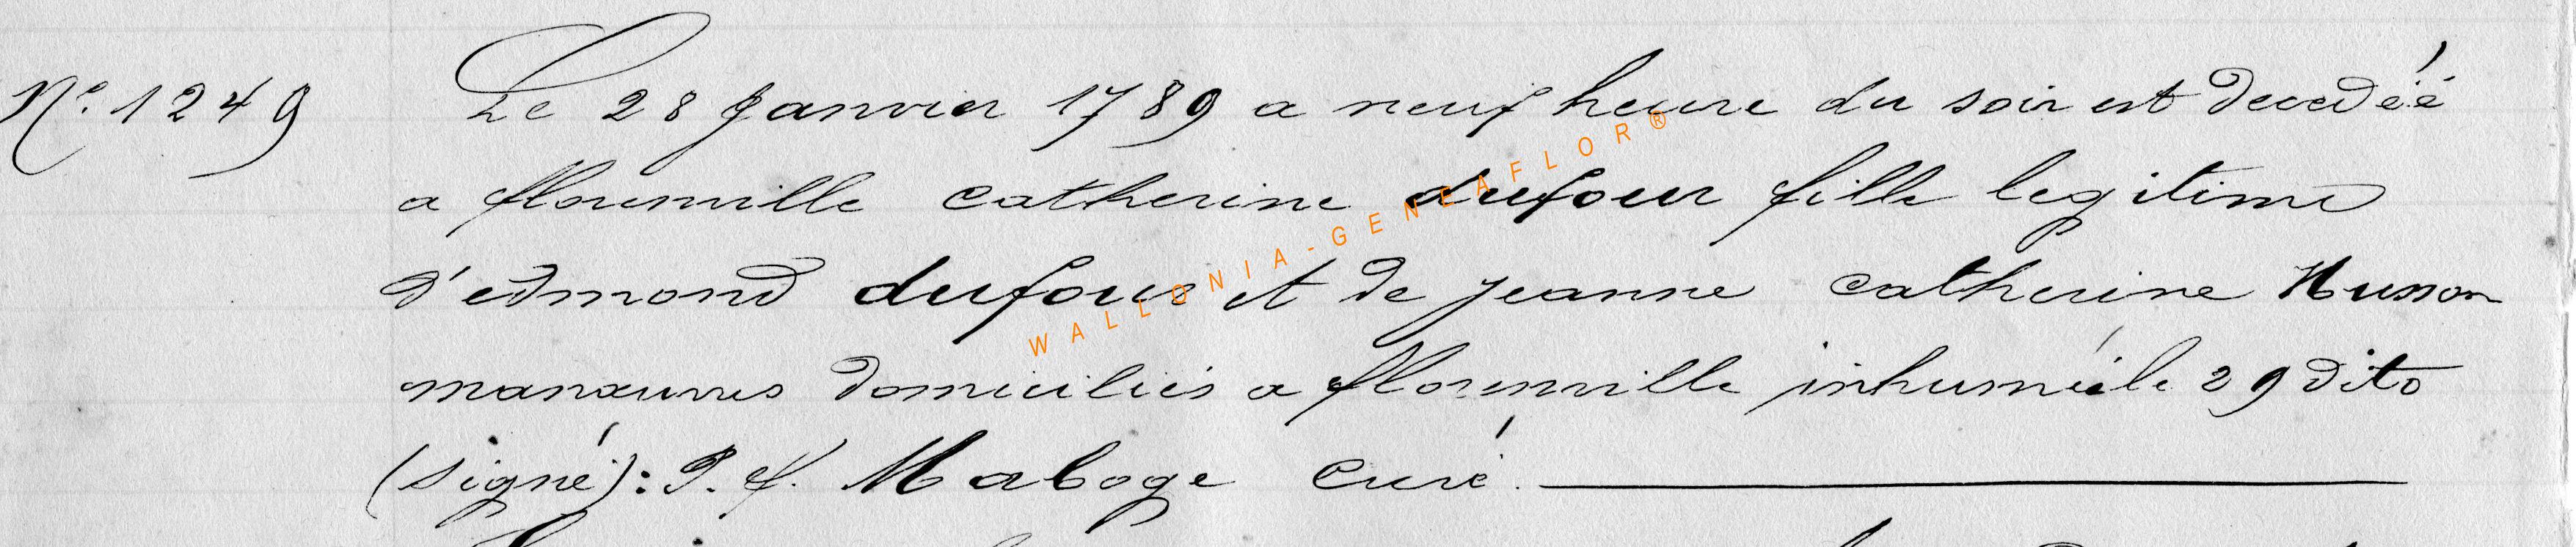 N° 1249 Le 28 Janvier 1789 a neuf heure du soir est decedéé
a florenville catherine dufour fille legitime
d'edmond dufour et de jeanne catherine Husson
manœuvres domiciliés a florenville inhumée le 29 dito
(signé): P. f. Maboge curé.
WALLONIA-GENEAFLOR®